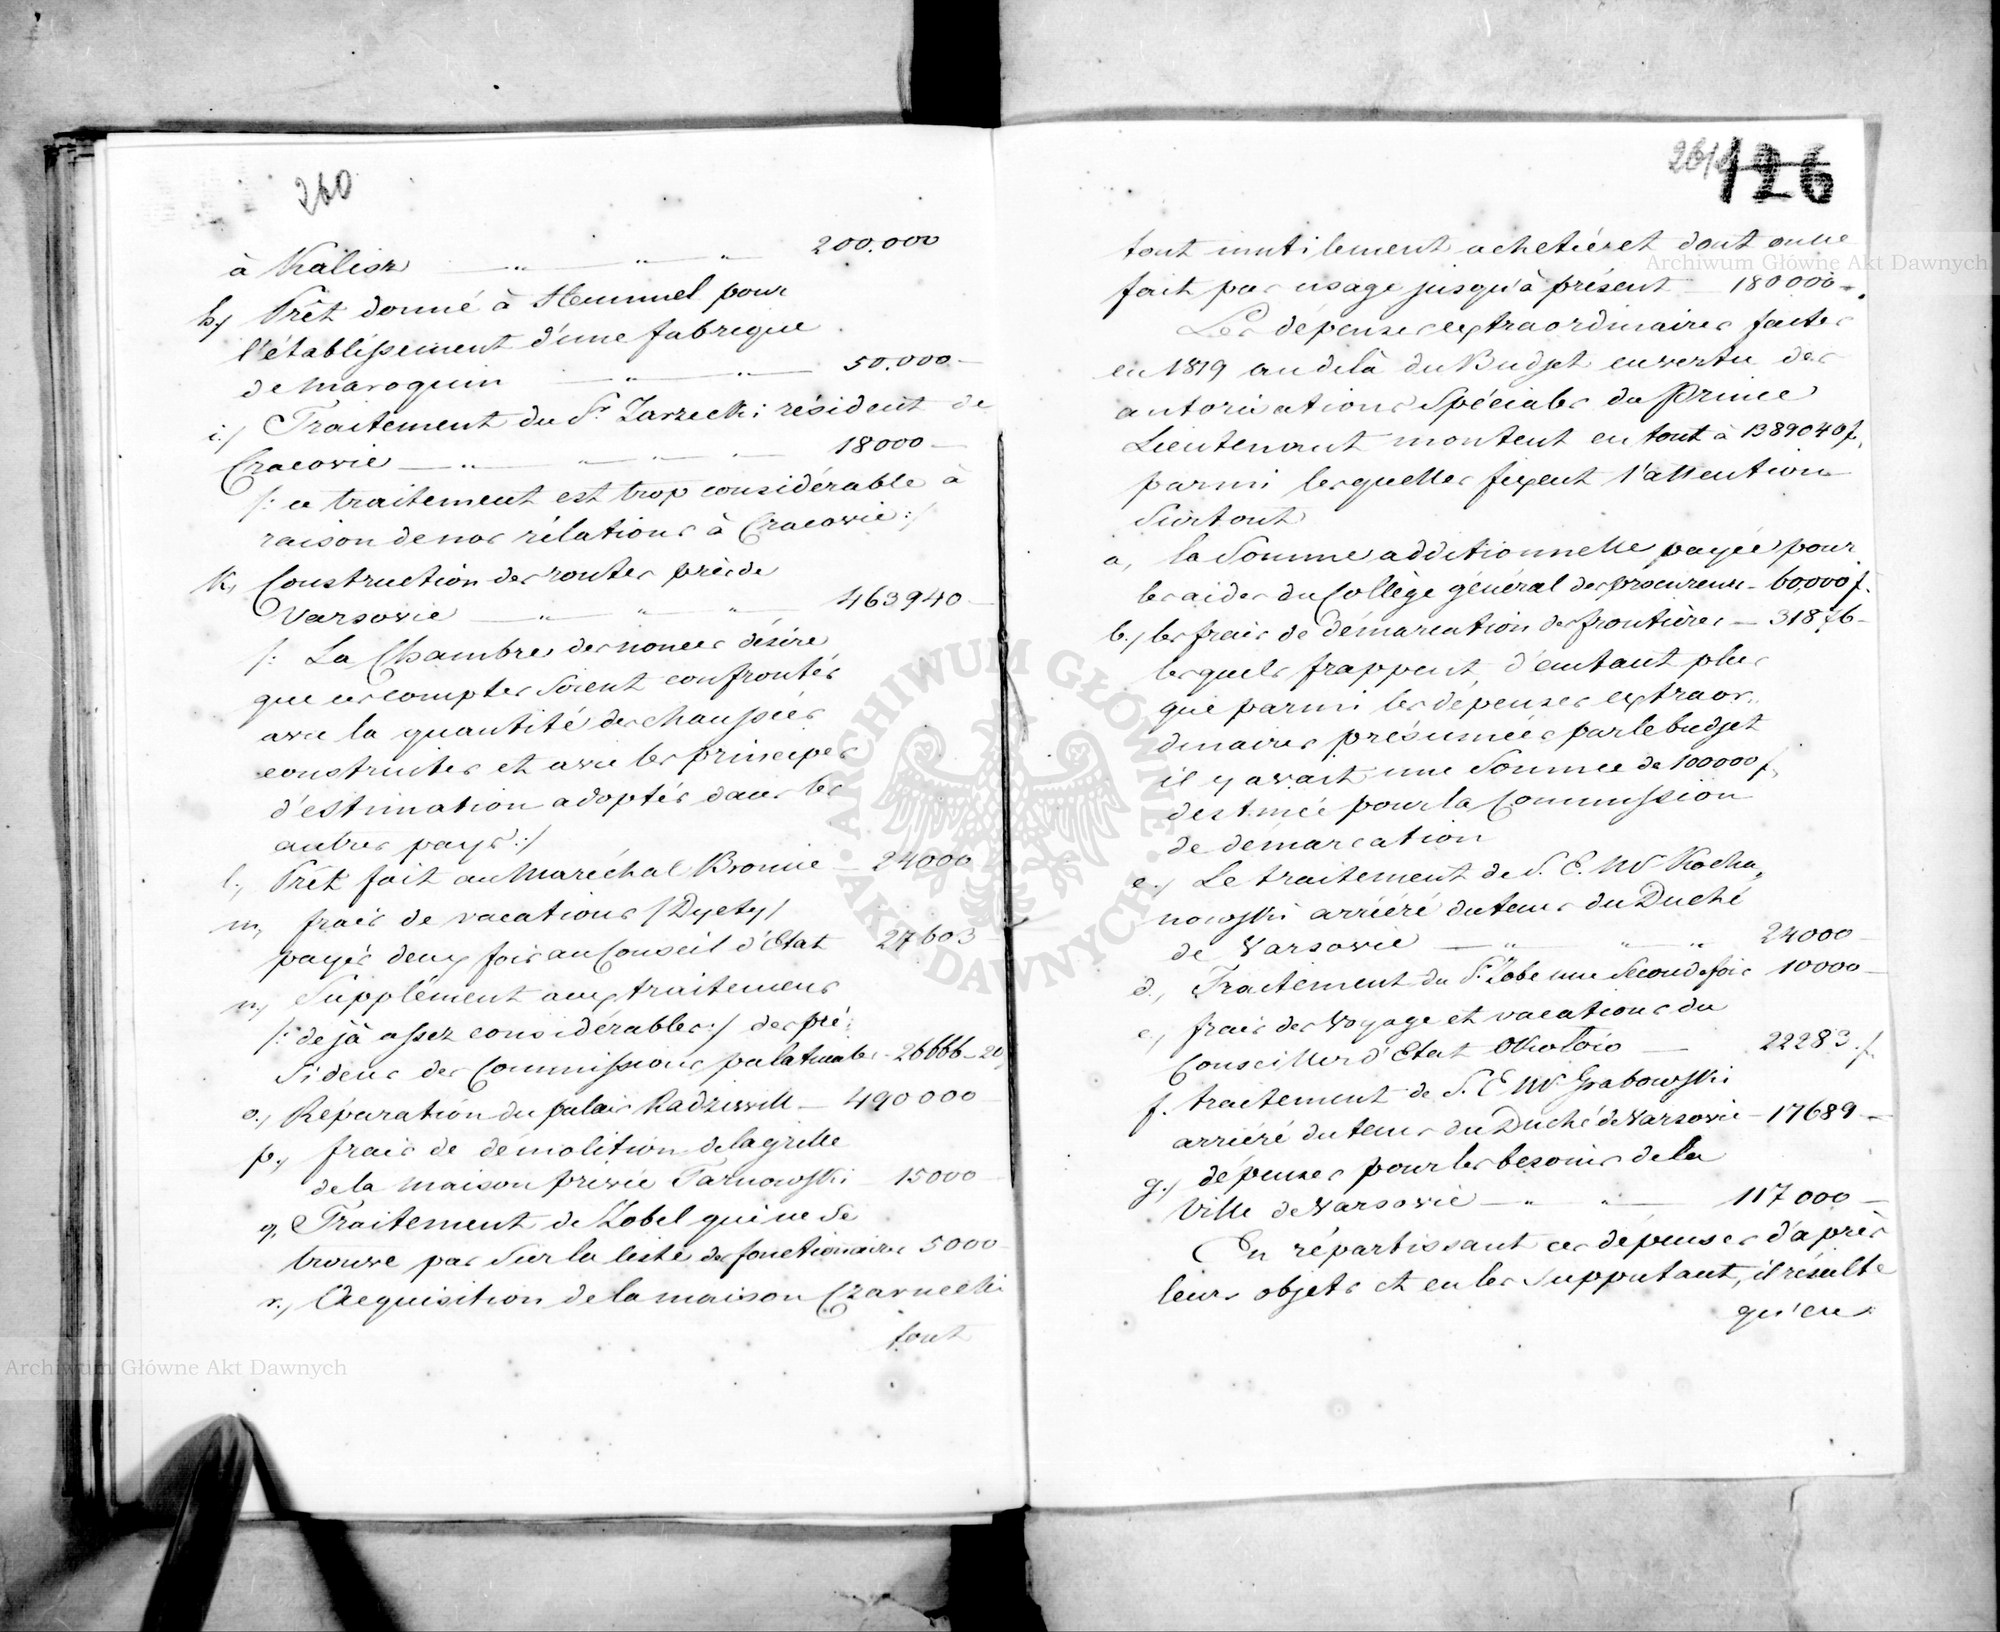 260
à Kalisz — " — " — " 200.000
h.) Prêt donné à Hemmel pour
l'établissement d'une fabrique
de maroquin — " — " — 50.000 —
i.) Traitement du Sr. Zarzecki résident de
Cracovie — " — " — " — 18000 —
/: ce traitement est trop considérable à
raison de nos rélations à Cracovie :/
k, Construction des routes près de
Varsovie — " — " — " — 463940 —
/: La Chambre des nonces désire
que ces comptes soient confrontés
avec la quantité des chaussées
construites et avec les principes
d'estimation adoptés dans les
autres pays :/
l., Prêt fait au Maréchal Bronic — 24000
m, frais de vacations /Dyety/
payés deux fois au Conseil d'Etat 27603
n, Supplément aux traitemens
/: déjà assez considérables :/ des pré:
sidens des Commissions palatinales - 26666 - 20
o., Réparation du palais Radziwill — 490000 —
p., frais de démolition de la grille
de la maison privée Tarnowski — 15000 —
q, Traitement de Zobel qui ne se
trouve pas sur la liste des fonctionnaires 5000 —
r., Acquisition de la maison Czarnecki
tout
261
126
tout inutilement achetié et dont on ne
fait pas usage jusqu'à présent — 180000 —.
Les dépenses extraordinaires faites
en 1819 au delà du Budjet en vertu des
autorisations spéciales du Prince
Lieutenant montent en tout à 1389040 f,
parmi lesquelles fixent l'attention
surtout
a, la somme additionnelle payée pour
les aides du Collège général des procureurs - 60,000 f.
b., les frais de démarcation des frontières — 31876 -
lesquels frappent d'autant plus
que parmi les depenses extraor„
dinaires présumées par le budjet
il y avait une somme de 100000 f,
destinée pour la Commission
de démarcation
c., Le traitement de S. E. Mr Kocha„
nowski arriéré du tems du Duché
de Varsovie — " — " — " 24000 —
d., Traitement du Sr. Zobe une seconde fois 10000 —
e, frais des voyage et vacations du
Conseiller d'Etat Okolow — 22283. f.
f. traitement de S. E Mr Grabowski
arriéré du tems du Duché de Varsovie — 17689 —
g., dépenses pour les besoins de la
Ville de Varsovie — " — " — 117000 —
En répartissant ces dépenses d'après
leurs objets et en les supputant, il résulte
qu'en
Archiwum Główne Akt Dawnych
ARCHIWUM GŁÓWNE · AKT DAWNYCH ·
Archiwum Główne Akt Dawnych